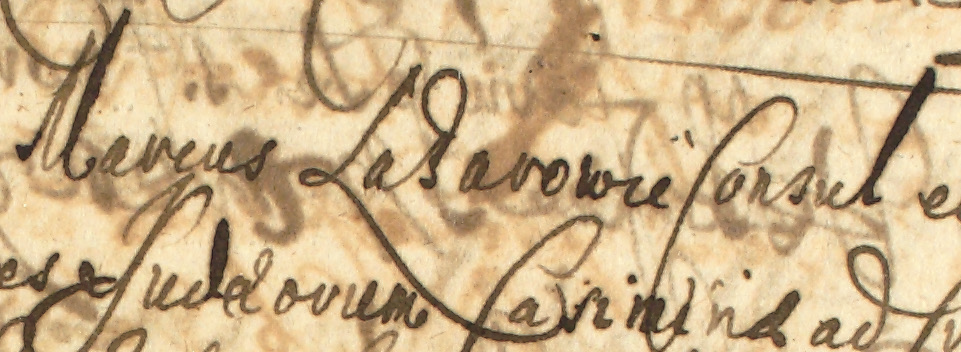 Marcus Lazarowic Consul et
es Judæorum Casimiriæ ad